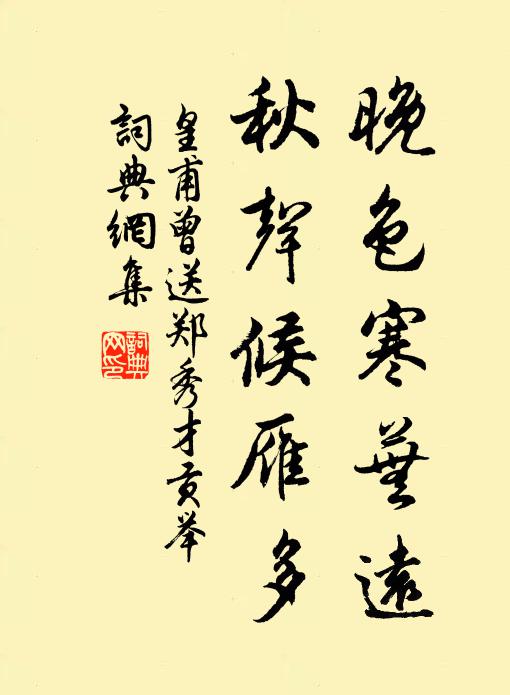 晚色寒蕪遠
秋聲候雁多
皇甫曾送郑秀才贡举
詞典網集
詞典网印